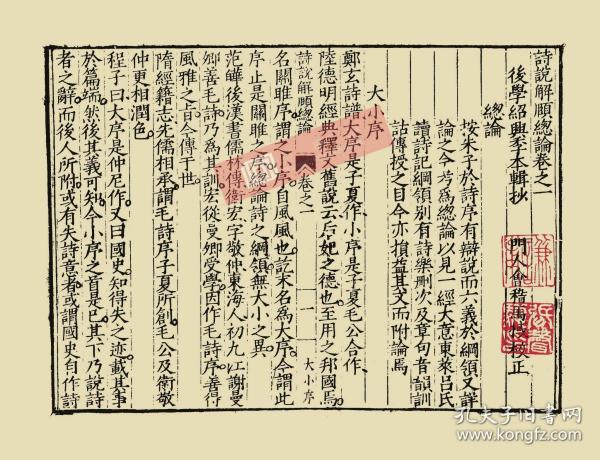 詩說解頤總論卷之一
後學紹興季本輯抄 門人會稽馬校正
總論
按朱子於詩序有辯說而六義於綱領又詳
論之今芳為總論以見一經大意東萊呂氏
讀詩記綱領別有詩樂刪次及章句音韻訓
詁傳授之目今亦損益其文而附論焉
大小序
鄭玄詩譜大序是子夏作小序是子夏毛公合作
陸德明經典釋文舊說云后妃之德也至用之邦國焉
詩說解頤總論 卷之一 一 大小序
名關雎序謂之小序自風風也訖末名為大序今謂此
序止是關雎之序總論詩之綱領無大小之異
范曄後漢書儒林傳衛宏字敬仲東海人初九江謝曼
卿善毛詩乃為其訓宏從曼卿受學因作毛詩序善得
風雅之旨今傳于世
隋經籍志先儒相承謂毛詩序子夏所創毛公及衛敬
仲更相潤色
程子曰大序是仲尼作又曰國史知得失之迹載其事
於篇端然後其義可知今小序之首是已其下乃說詩
者之辭而後人所附或有失詩意者或謂國史自作詩
孔夫子旧书网
www.kongfz.com